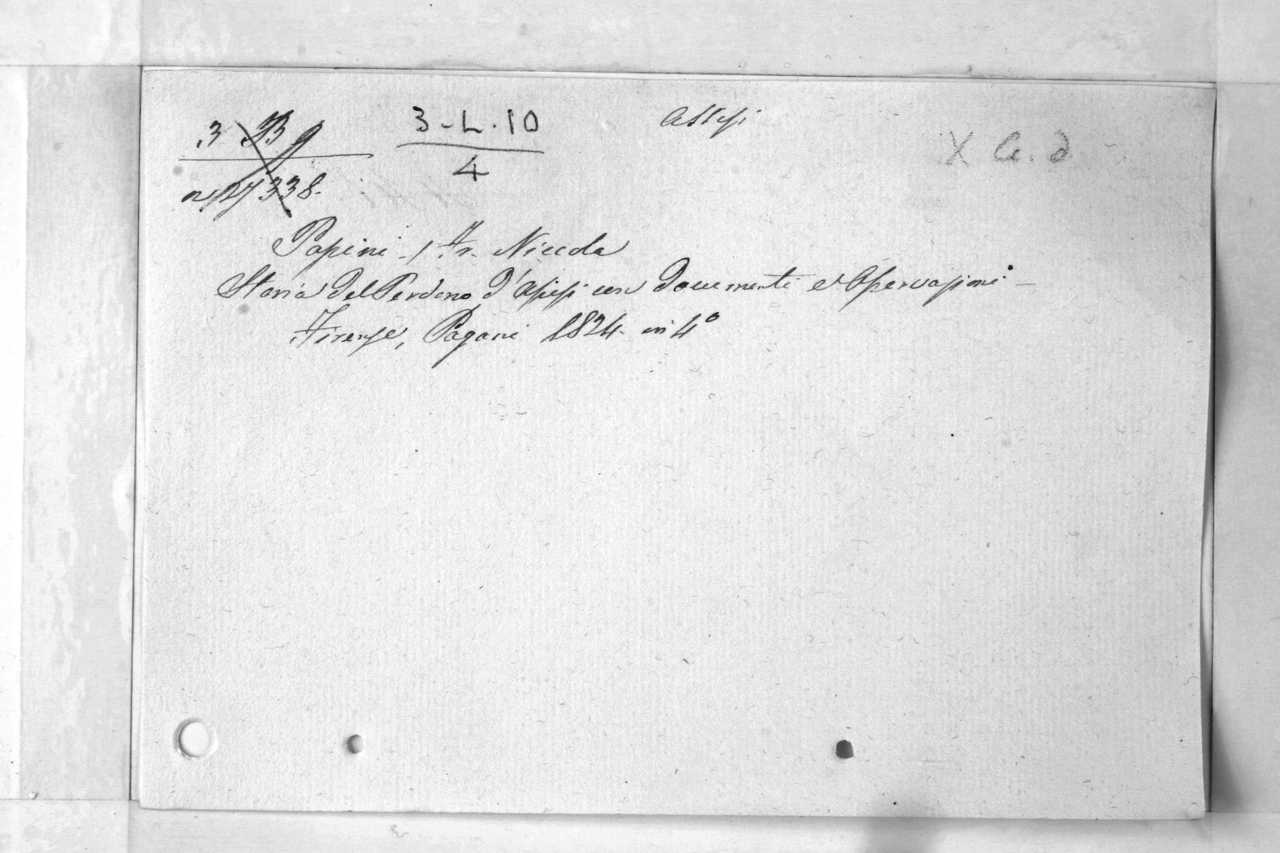 3-L.10
4
Assisi
X a. d
338.
Papini - Fr. Niccola
Storia del Perdono d'Assisi con documenti ed Osservazioni -
Firenze, Pagani 1824 in 4°